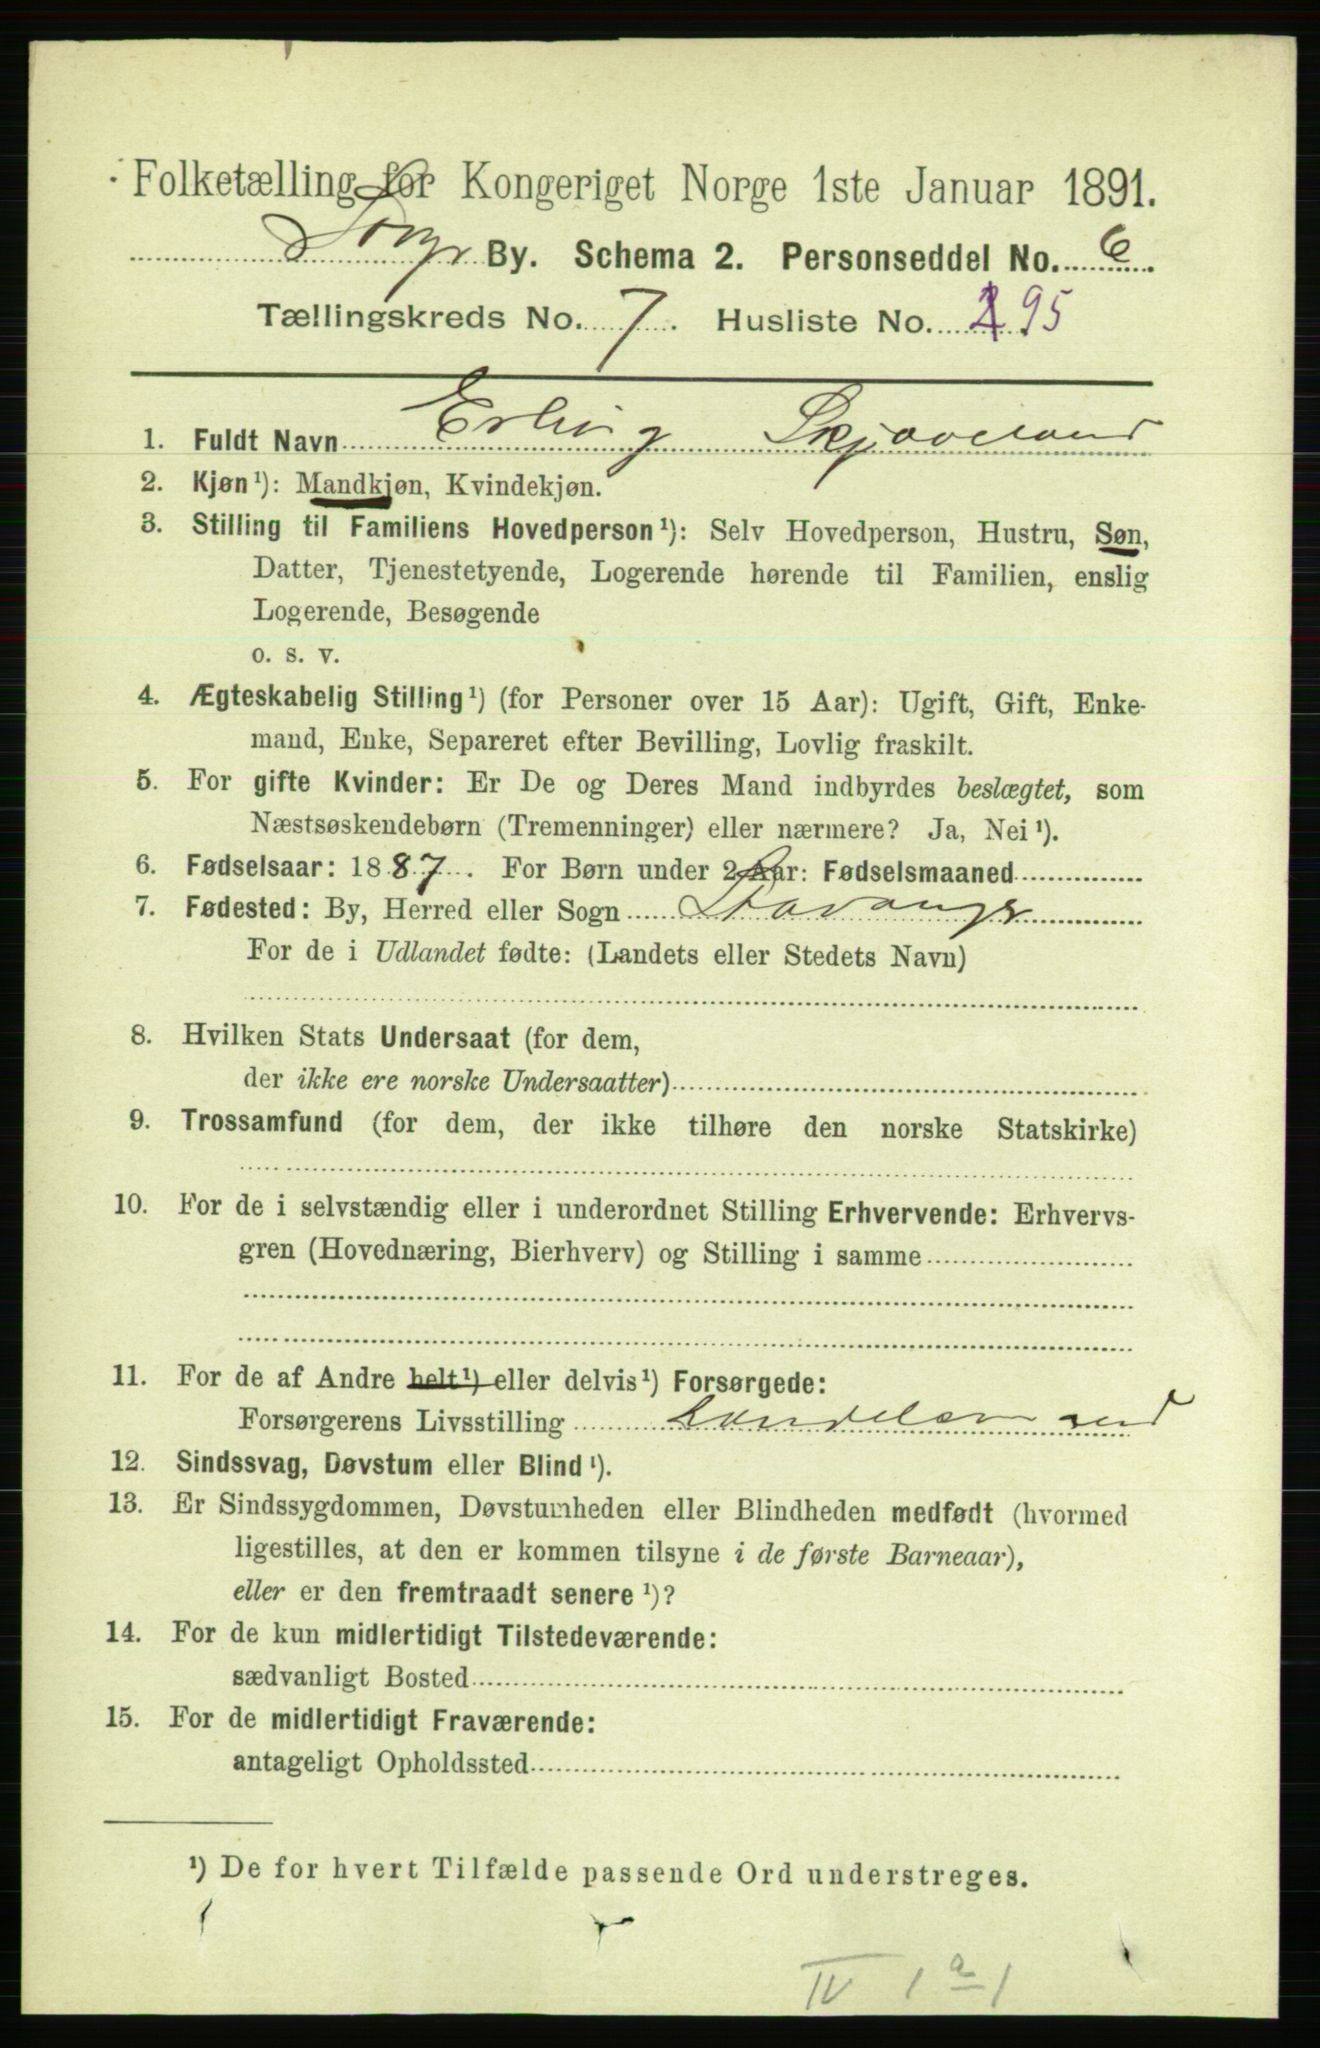 Folketælling for Kongeriget Norge 1ste Januar 1891.
By. Schema 2. Personseddel No. 6.
Tællingskreds No. 7. Husliste No. 195
1. Fuldt Navn Erling Skjæveland
2. Kjøn¹): Mandkjøn, Kvindekjøn.
3. Stilling til Familiens Hovedperson¹): Selv Hovedperson, Hustru, Søn,
Datter, Tjenestetyende, Logerende hørende til Familien, enslig
Logerende, Besøgende
o. s. v.
4. Ægteskabelig Stilling¹) (for Personer over 15 Aar): Ugift, Gift, Enke-
mand, Enke, Separeret efter Bevilling, Lovlig fraskilt.
5. For gifte Kvinder: Er De og Deres Mand indbyrdes beslægtet, som
Næstsøskendebørn (Tremenninger) eller nærmere? Ja, Nei¹).
6. Fødselsaar: 1887. For Børn under 2 Aar: Fødselsmaaned
7. Fødested: By, Herred eller Sogn Stavanger
For de i Udlandet fødte: (Landets eller Stedets Navn)
8. Hvilken Stats Undersaat (for dem,
der ikke ere norske Undersaatter)
9. Trossamfund (for dem, der ikke tilhøre den norske Statskirke)
10. For de i selvstændig eller i underordnet Stilling Erhvervende: Erhvervs-
gren (Hovednæring, Bierhverv) og Stilling i samme
11. For de af Andre helt¹) eller delvis¹) Forsørgede:
Forsørgerens Livsstilling Handelsmand
12. Sindssvag, Døvstum eller Blind¹).
13. Er Sindssygdommen, Døvstumheden eller Blindheden medfødt (hvormed
ligestilles, at den er kommen tilsyne i de første Barneaar),
eller er den fremtraadt senere¹)?
14. For de kun midlertidigt Tilstedeværende:
sædvanligt Bosted
15. For de midlertidigt Fraværende:
antageligt Opholdssted
¹) De for hvert Tilfælde passende Ord understreges.
IV 1 a 1